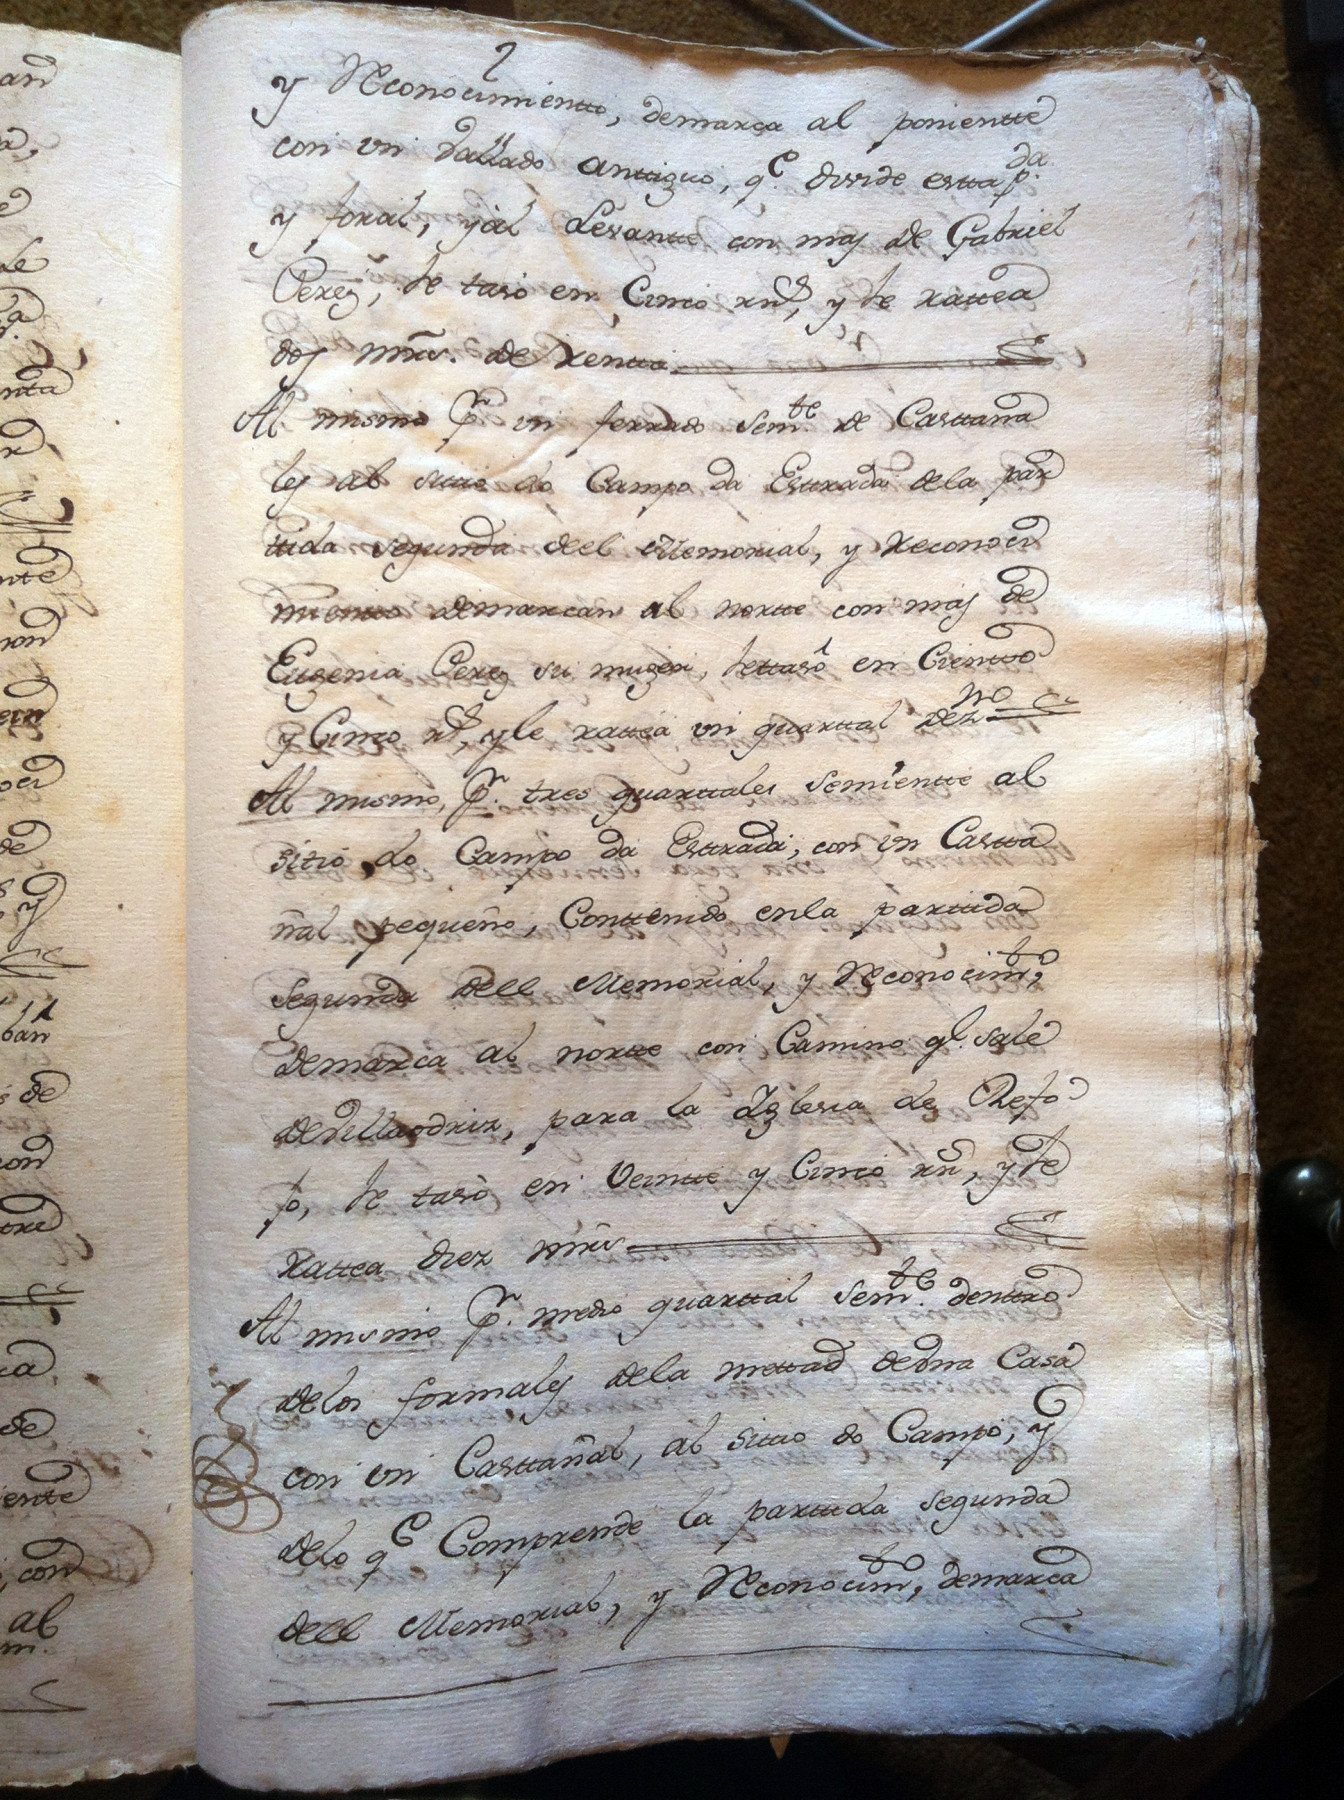 y Reconocimientto, demarca al ponientte
con un Vallado anttiguo, q.e divide estta p.da
y foral, y al Levantte con mas de Gabriel
Perez, se taso en Cinco rr.s, y se rattea
dos mrs. de Rentta
Al mismo P.r un ferrado sem.te de Casttaña
les al sitio do Campo da Esttrada de la par
ttida segunda del Memorial, y Reconoci
mientto demarcan al nortte con mas de
Eugenia Perez su muger, settasó en Cientto
y Cinco rr.s, y le rattea un quarttal dez.no
Al mismo, P.r tres quarttales semientte al
sitio do Campo da Esttrada, con un Castta
ñal pequeño, Conttenido enla parttida
segunda dell Memorial, y Reconocim.to,
demarca al nortte con Camino q.e sale
de Villaodriz, para la Iglesia de Refo
fo, se tasó en Veintte y Cinco rr.s, y se
Rattea diez mrs
Al mismo P.r medio quarttal sem.te denttro
delos formales dela mettad deuna Casa
con un Casttañal, al sitio do Campo, y
delo q.e Comprende la parttida segunda
dell Memorial, y Reconocim.to, demarca